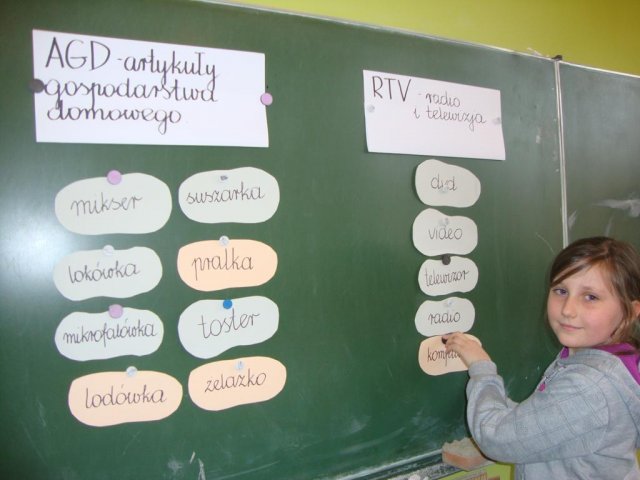 AGD - artykuły
gospodarstwa
domowego
RTV - radio
i telewizja
mikser
suszarka
lokówka
pralka
mikrofalówka
toster
lodówka
żelazko
dvd
video
telewizor
radio